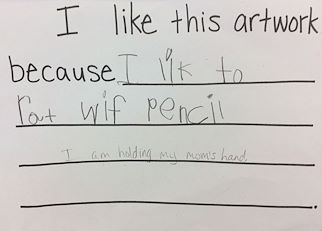 I like this artwork
because I lik to
rout wif pencil
I am holding my mom's hand
.